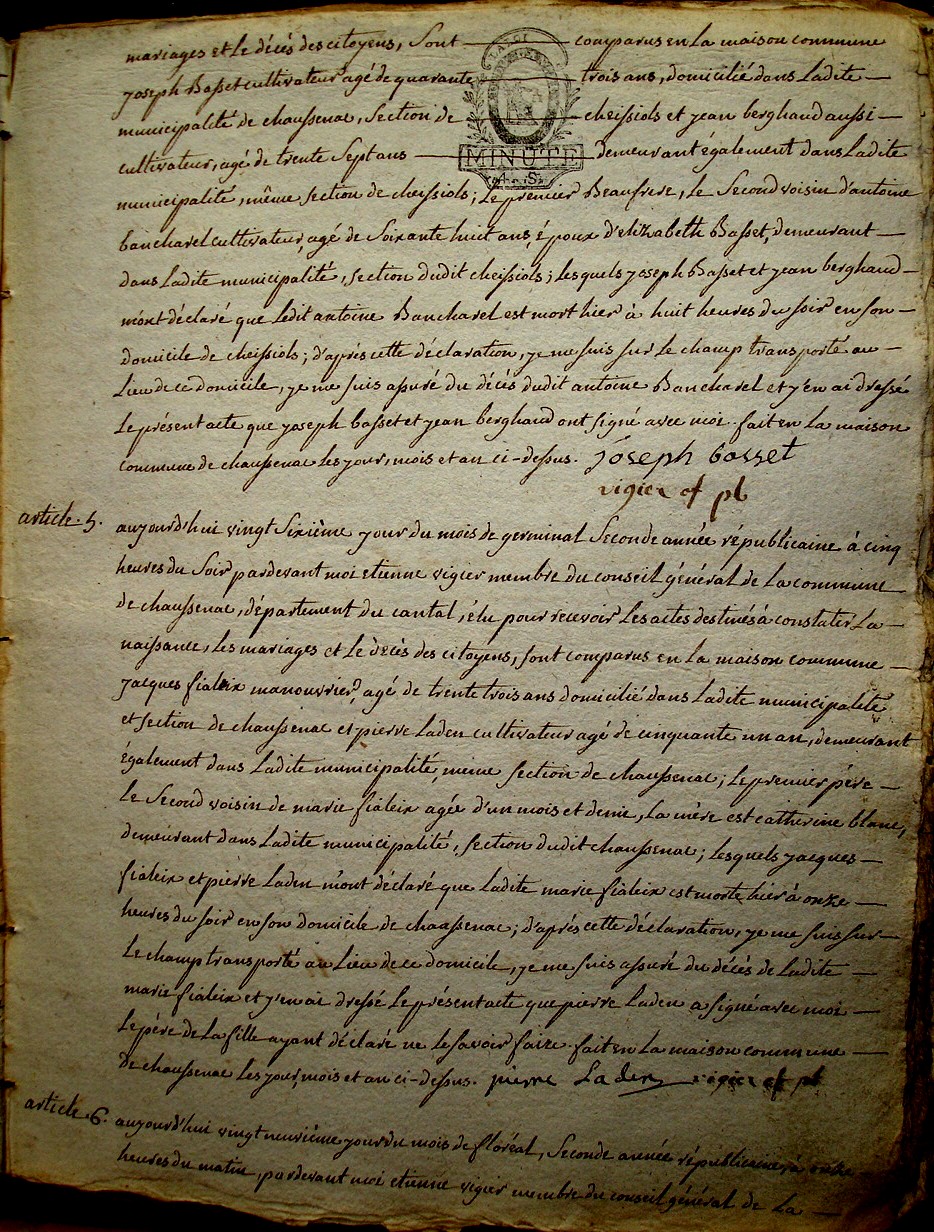 mariages et le décès des citoyens, Sont comparus en La maison commune
joseph Basset cultivateur agé de quarante trois ans, domicilié dans Ladite
LA LOI
municipalité de chaussenac, Section de cheissiols et jean berghaud aussi
cultivateur, agé de trente Sept ans demeurant également dans Ladite
MINUTE
municipalité, même section de cheissiols; Le premier Beaufrere, Le Second voisin d'antoine
bancharel cultivateur, agé de Soixante huit ans, époux d'elizabeth Basset, demeurant
dans Ladite municipalité, section dudit cheissiols; lesquels joseph Basset et jean berghaud
m'ont déclaré que Ledit antoine Bancharel est mort hier à huit heures du soir en son
domicile de cheissiols; d'après cette déclaration, je me suis sur Le champ transporté au
Lieu de ce domicile, je me suis assuré du décès dudit antoine Bancharel et j'en ai dressé
Le présent acte que joseph basset et jean berghaud ont signé avec moi. fait en La maison
commune de chaussenac Les jour, mois et an ci-dessus. joseph basset
vigier of pb
article. 5. aujourd'hui vingt Sixième jour du mois de germinal Seconde année républicaine à cinq
heures du Soir pardevant moi etienne vigier membre du conseil général de La commune
de chaussenac, département du cantal, élu pour recevoir Les actes destinés à constater La
naissance, Les mariages et Le décès des citoyens, sont comparus en La maison commune
jacques fialeix manouvrier, agé de trente trois ans domicilié dans Ladite municipalité
et section de chaussenac et pierre Laden cultivateur agé de cinquante un an, demeurant
également dans Ladite municipalité, même section de chaussenac; Le premier père
Le Second voisin de marie fialeix agée d'un mois et demi, La mère est catherine blanc,
demeurant dans Ladite municipalité, section dudit chaussenac; Lesquels jacques
fialeix et pierre Laden m'ont déclaré que Ladite marie fialeix est morte hier à onze
heures du soir en son domicile de chaussenac; d'après cette déclaration, je me suis sur
Le champ transporté au Lieu de ce domicile, je me suis assuré du décès de Ladite
marie fialeix et j'en ai dressé Le présent acte que pierre Laden a signé avec moi
Le père de La fille ayant déclaré ne Le savoir faire. fait en La maison commune
de chaussenac Les jour, mois et an ci-dessus. pierre Laden vigier of pb
article. 6. aujourd'hui vingt neuvième jour du mois de floréal, Seconde année républicaine, à onze
heures du matin, pardevant moi etienne vigier membre du conseil général de La